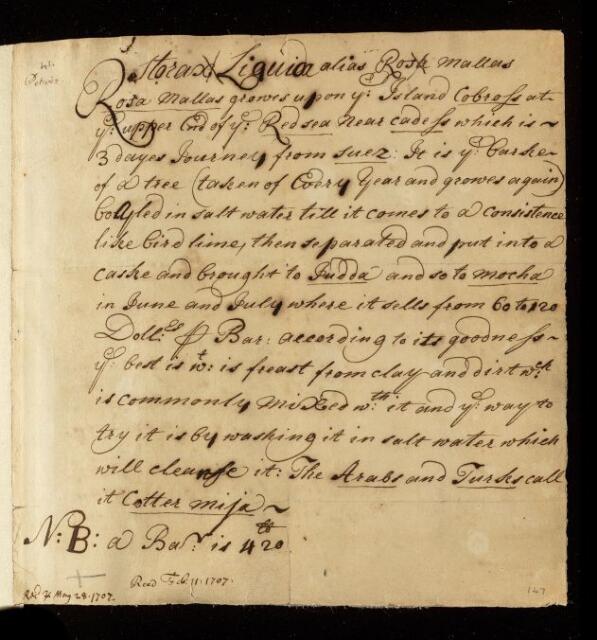 Storax Liquida alias Rosa mallas
Rosa mallas growes upon ye: Island Cobross at
ye: upper End of ye: Red sea Near cadess which is ~
3 dayes Journey from suez: It is ye: barke
of a tree (taken of Every Year and growes again)
boyled in salt water till it comes to a consistence
like bird lime, then separated and put into a
caske and brought to Judda and so to mocha
in June and July where it sells from 60 to 120
Doll:rs ⅌ Bar: according to its goodness ~
ye: best is wt: is freast from clay and dirt wch:
is commonly mixed wth: it and ye: way to
try it is by washing it in salt water which
will cleanse it: The Arabs and Turks call
it Cotter mija ~
N: B: a Bar: is 420 lb
Read Feb. 11. 1707.
May 28. 1707.
147